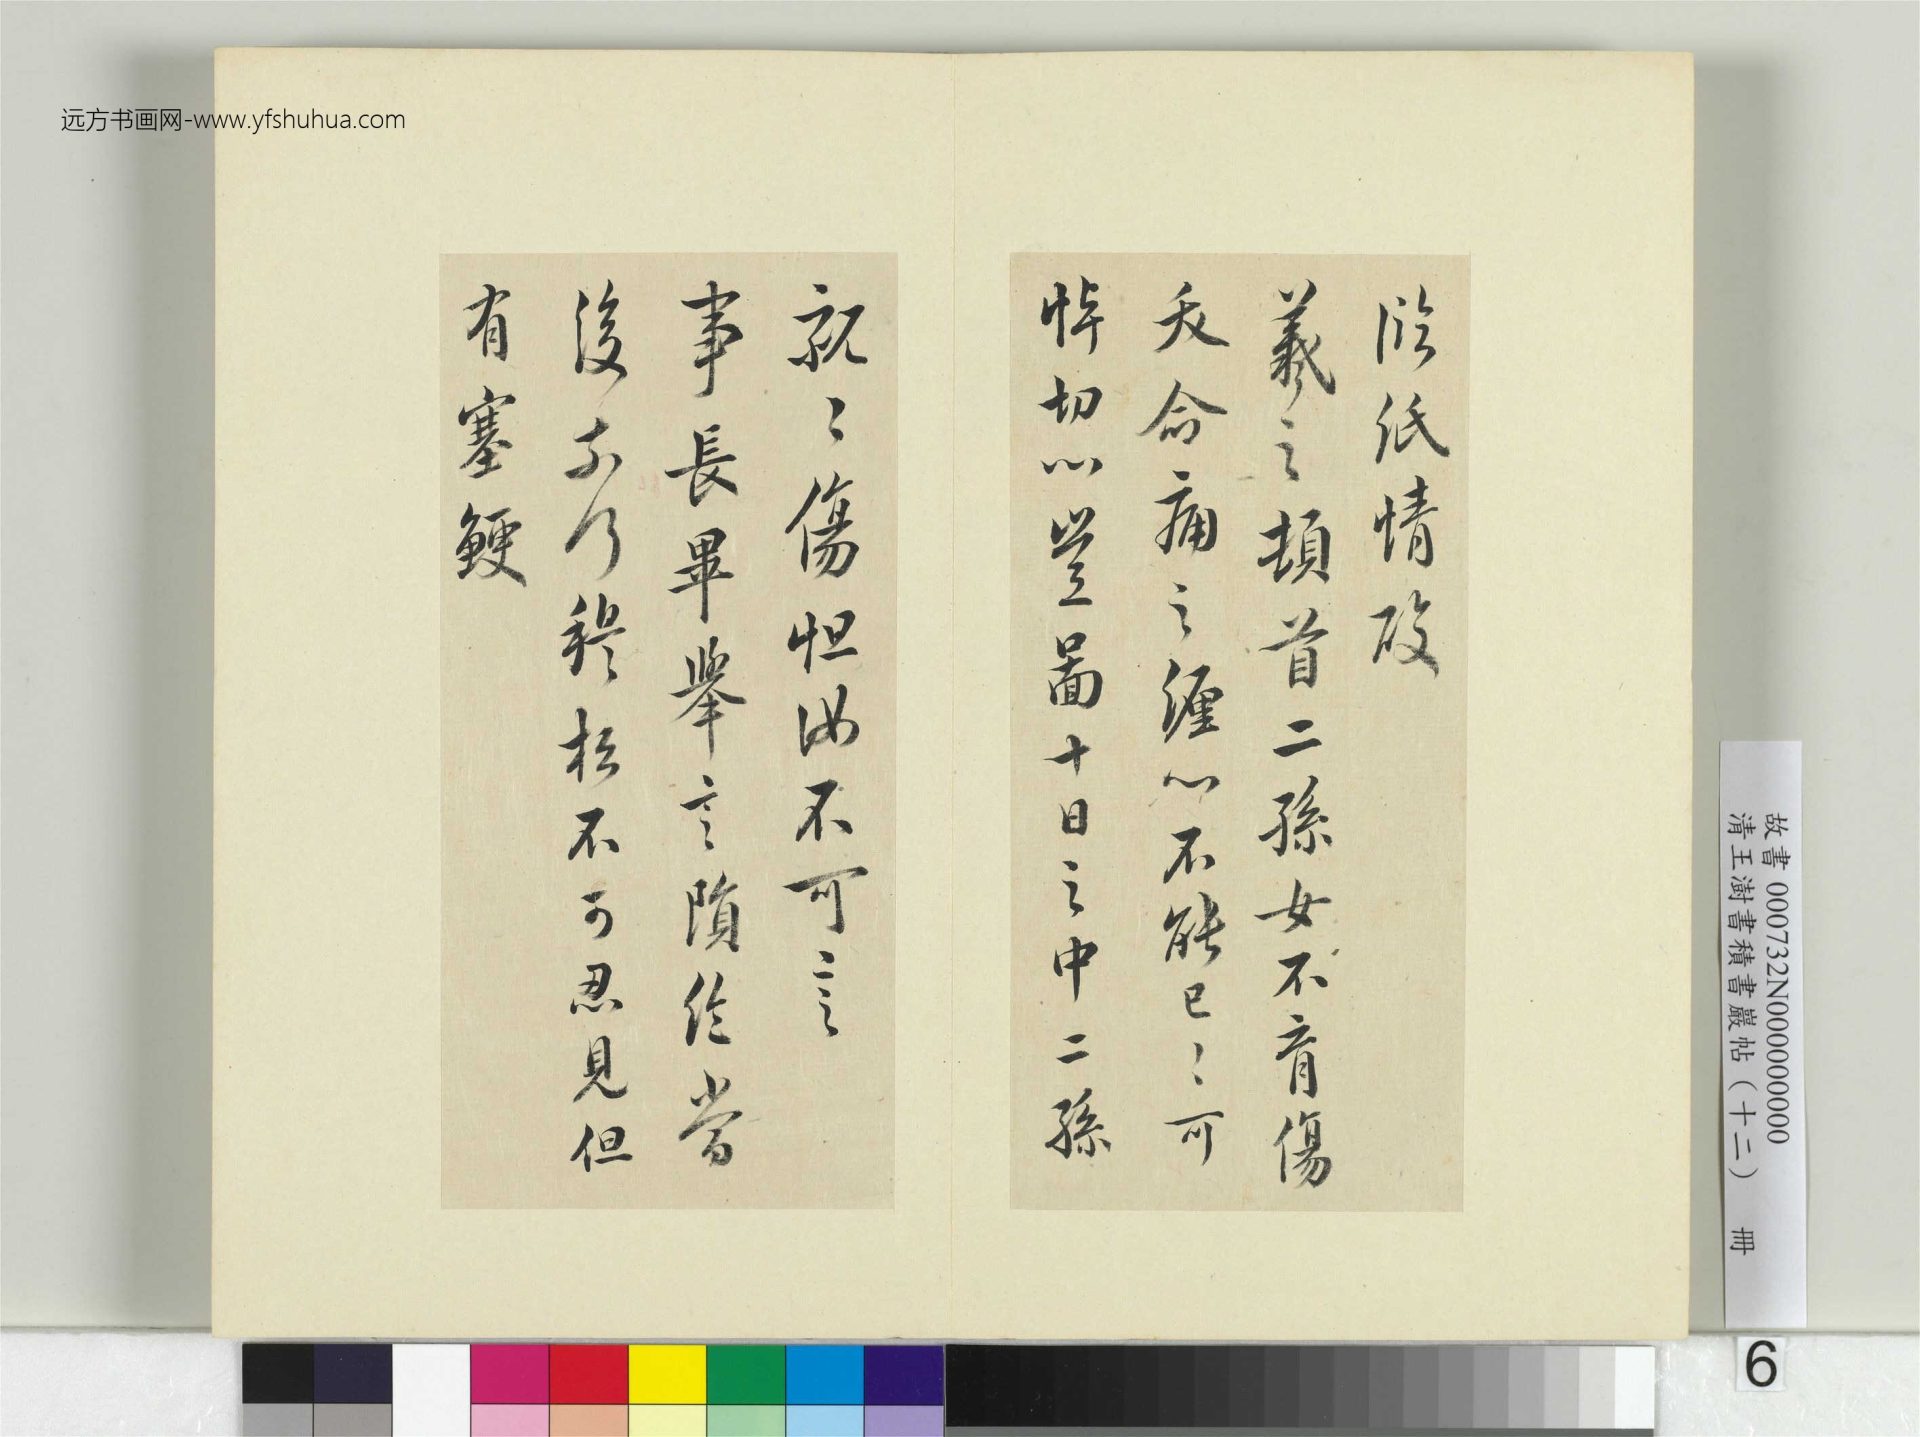 臨紙情酸
羲之頓首二孫女不育傷
夭命痛之纏心不能已〻可
悼切心豈圖十日之中二孫
傷怛汝不可言
事長畢舉言隕絕當
復奈何穆松不可忍見但
有塞鯁
远方书画网-www.yfshuhua.com
故書 000732N000000000
清王澍書積書巖帖（十二） 冊
6